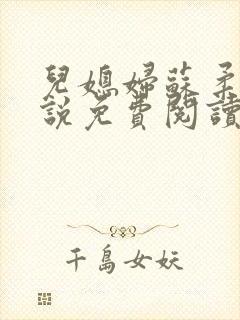 兒媳婦蘇柔
說免費閱讀
千島女妖